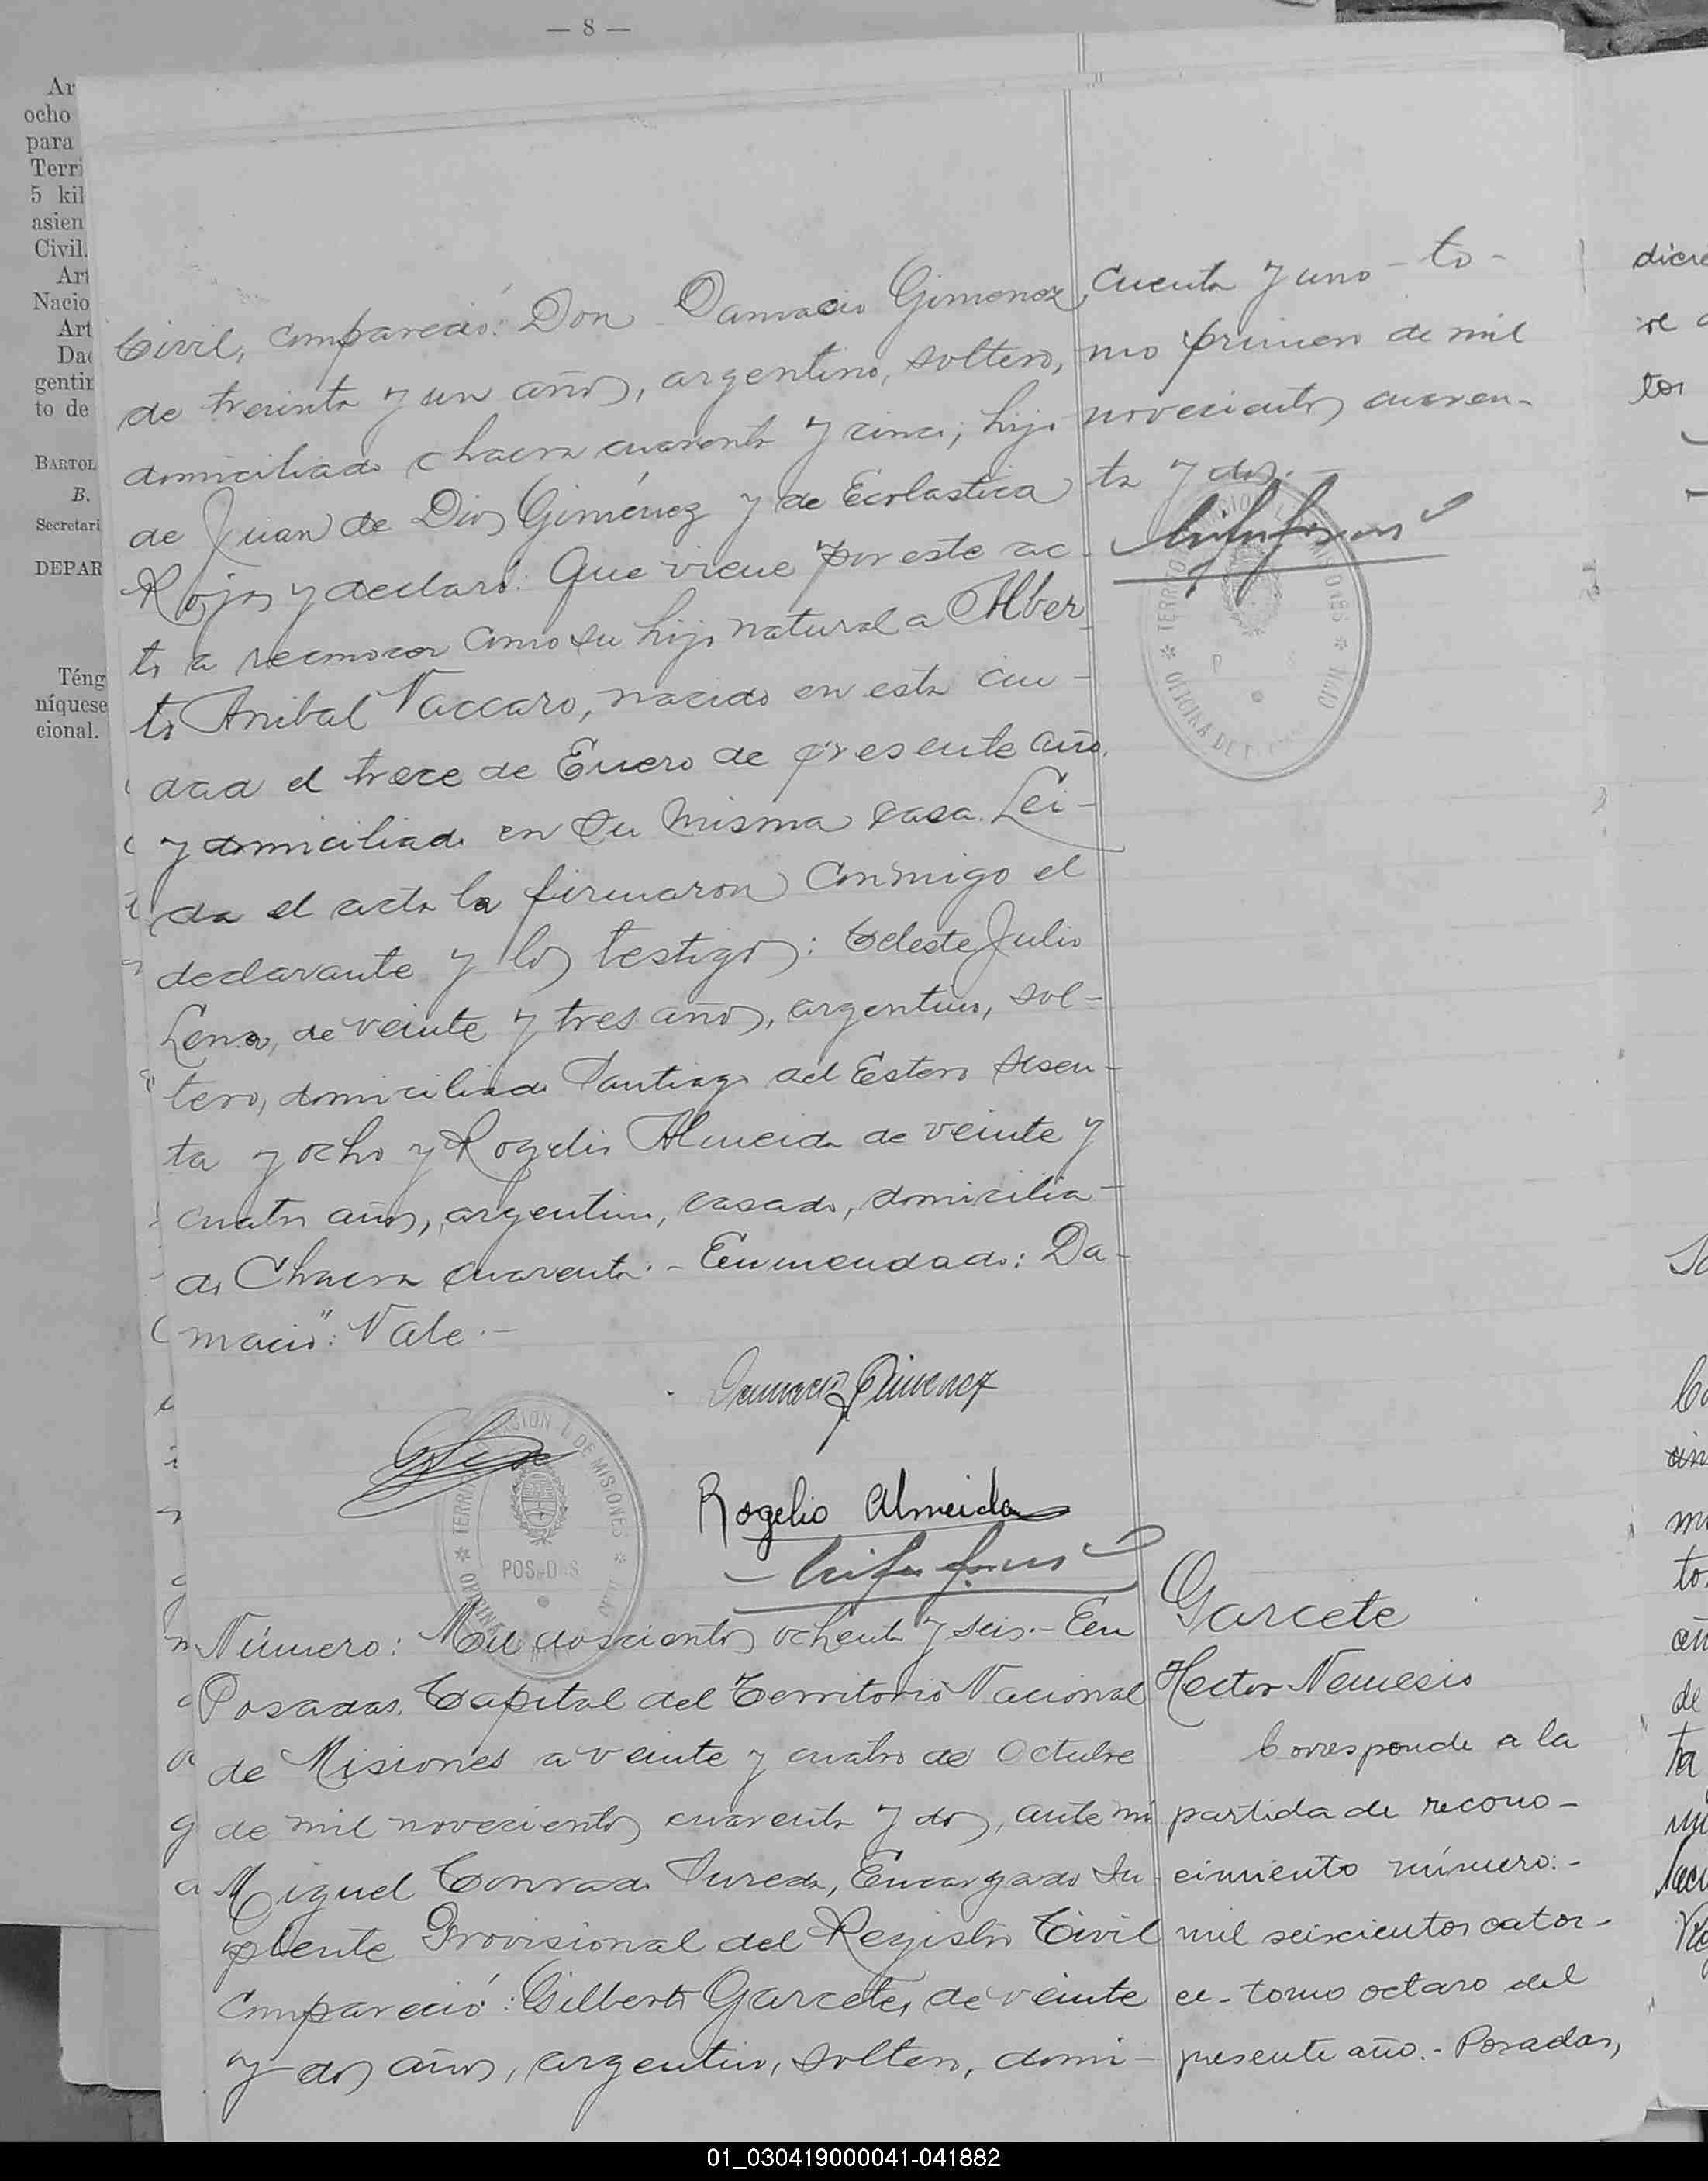 — 8 —
Ar
ocho
para
Terri
5 kil
asien
Civil.
Art
Nacio
Art
Dad
gentin
to de
BARTOL
B.
Secretari
DEPAR
Téng
níquese
cional.
Civil, compareció: Don Damacio Gimenez,
de treinta y un años, argentino, soltero,
domiciliado chacra cuarenta y cinco; hijo
de Juan de Dios Giménez y de Ecolastica
Rojas y declaró: Que viene por este ac-
to a reconocer como su hijo natural a Alber
to Anibal Vaccaro, nacido en esta ciu-
dad el trece de Enero de presente año.
y domiciliado en su misma casa. Lei-
da el acta la firmaron conmigo el
declarante y los testigos: Celeste Julio
Lena, de veinte y tres años, argentino, sol-
tero, domiciliado Santiago del Estero sesen-
ta y ocho y Rogelio Almeida de veinte y
cuatro años, argentino, casado, domicilia-
do Chacra cuarenta.- Enmendado: Da-
macio": Vale.-
Damacio Gimenez
Rogelio Almeida
TERRITORIO MISIONES
POSADAS
OFICINA
cuenta y uno - to-
mo primero de mil
novecientos cuaren-
ta y dos.-
OFICINA DE
Número: Mil doscientos ochenta y seis.- En
Posadas, Capital del Territorio Nacional
de Misiones a veinte y cuatro de Octubre
de mil novecientos cuarenta y dos, ante mi
Miguel Conrado Sureda, Encargado Su-
plente Provisional del Registro Civil
compareció: Gilberto Garcete, de veinte
y dos años, argentino, soltero, domi-
Garcete
Hector Nemesio
Corresponde a la
partida de recono-
cimiento número:-
mil seiscientos cator-
ce - tomo octavo del
presente año.- Posadas,
01_030419000041-041882